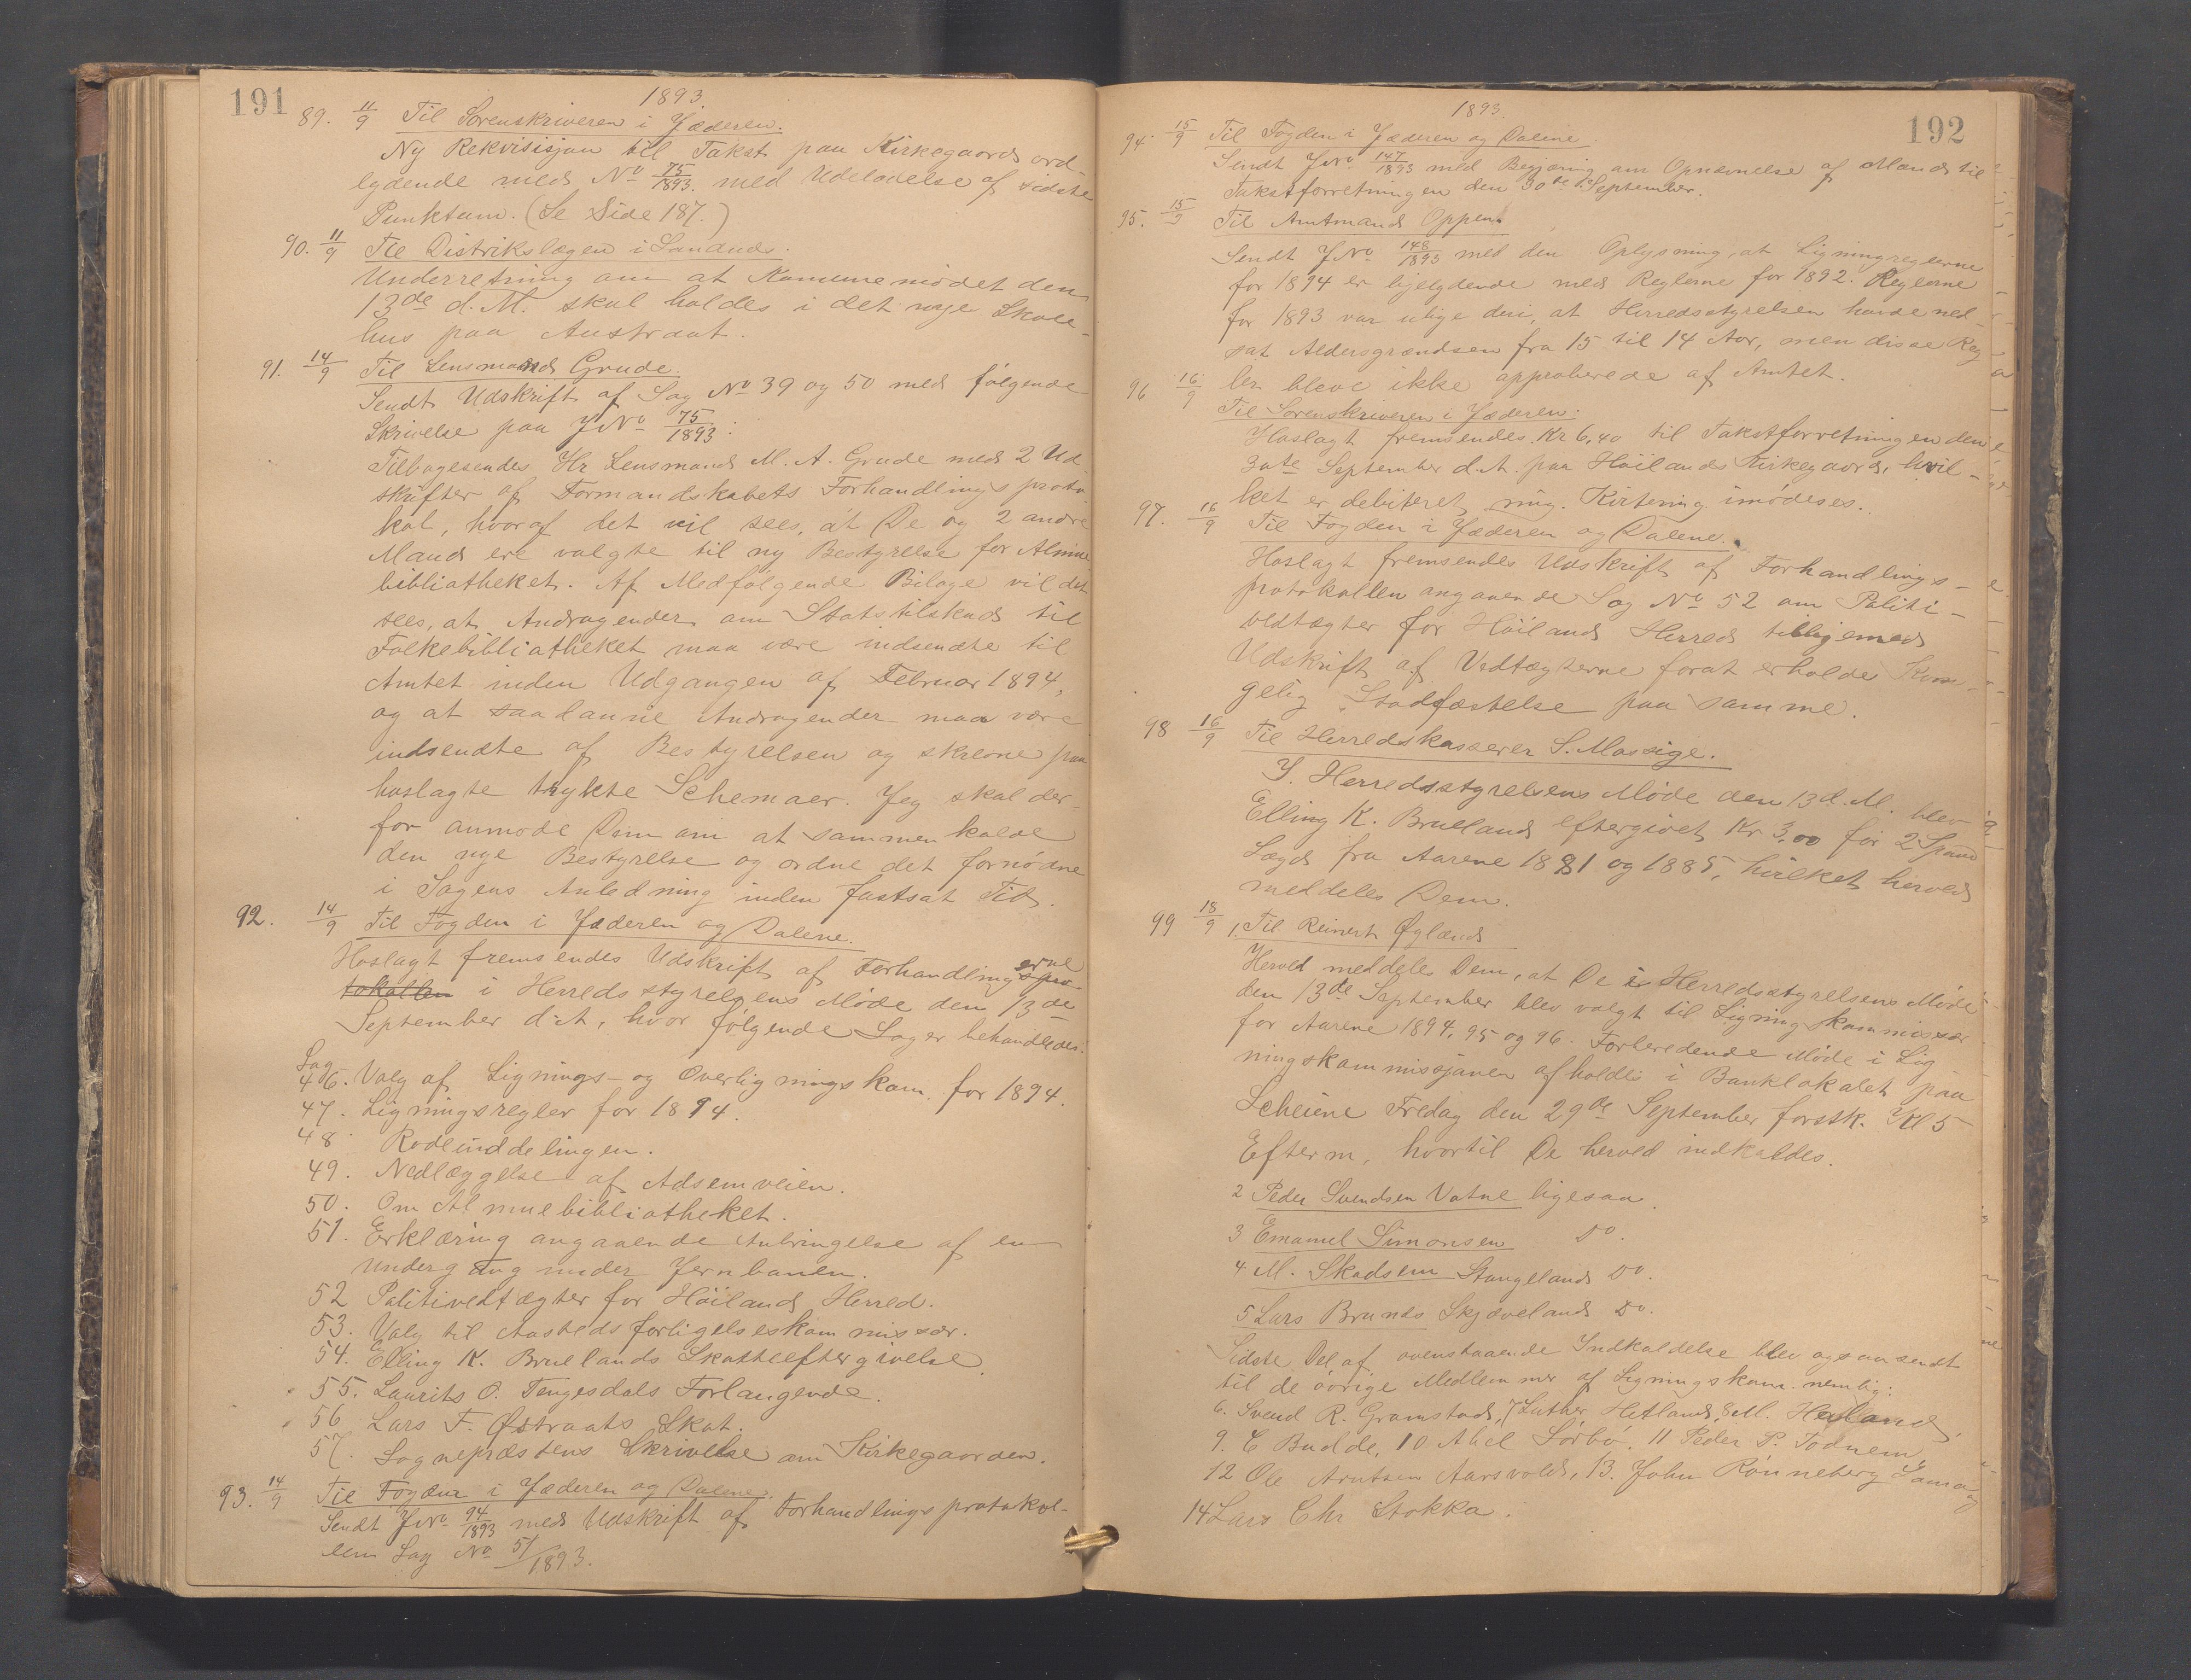 191
1893.
89. 11/9 Til Sorenskriveren i Jæderen.
Ny Rekvisisjon til Takst paa Kirkegaard ord-
lydende med No 75/1893. med Udeladelse af sidste
Punktum. (Se Side 187.)
90. 11/9 Til Distrikslægen i Sandnes.
Underretning om at Komunemødet den
13de d. M. skal holdes i det nye Skole-
hus paa Austraat.
91. 14/9 Til Lensmand Grude.
Sendt Udskrift af Sag No 39 og 50 med følgende
Skrivelse paa J No 75/1893:
Tilbagesendes Hr Lensmand M. A. Grude med 2 Ud-
skrifter af Formandskabets Forhandlingsproto-
kol, hvoraf det vil sees, at De og 2 andre
Mand ere valgte til ny Bestyrelse for Almue
bibliotheket. Af Medfølgende Bilage vil det
sees, at Andragender om Statstilskud til
Folkebibliotheket maa være indsendte til
Amtet inden Udgangen af Februar 1894,
og at saadanne Andragender maa være
indsendte af Bestyrelsen og skrevne paa
hoslagte trykte Schemaer. Jeg skal der-
for anmode Dem om at sammenkalde
den nye Bestyrelse og ordne det fornødne
i Sagens Anledning inden fastsat Tid.
92. 14/9 Til Fogden i Jæderen og Dalene.
Hoslagt fremsendes Udskrift af Forhandlingerne spro-
tokollen i Herredsstyrelsens Møde den 13de
September d. A, hvor følgende Sager behandledes:
Sag
46. Valg af Lignings- og Overligningskom. for 1894.
47. Ligningsregler for 1894.
48. Rodeinddelingen.
49. Nedlæggelse af Adsemveien.
50. Om Almuebibliotheket.
51. Erklæring angaaende Anbringelse af en
Undergang under Jernbanen.
52 Politivedtægter for Høiland Herred.
53. Valg til Aastedsforligelseskommissær.
54. Elling K. Bruelands Skatteeftergivelse
55. Laurits O. Tengesdals Forlangende.
56 Lars F. Østraats Skat.
57. Sognepræstens Skrivelse om Kirkegaarden.
93. 14/9 Til Fogden i Jæderen og Dalene.
Sendt J No 94/1893 med Udskrift af Forhandlingsprotokol-
len Sag No 51/1893.
192
1893.
94. 15/9 Til Fogden i Jæderen og Dalene
Sendt J No 147/1893 med Begjæring om Opnævnelse af Mænd til
Takstforretningen den 30te September.
95. 15/9 Til Amtmand Oppen.
Sendt J No 148/1893 med den Oplysning, at Ligningreglerne
for 1894 er ligelydende med Reglerne for 1892. Reglerne
for 1893 var ulige deri, at Herredsstyrelsen havde ned-
sat Aldersgrændsen fra 15 til 14 Aar, men disse Reg
ler bleve ikke approberede af Amtet.
96 16/9
Til Sorenskriveren i Jæderen:
Hoslagt fremsendes Kr 6,40 til Takstforretningen den
30te September d. A. paa Høilands Kirkegaard, hvil-
ket er debiteret mig. Kvitering imødeses.
97. 16/9 Til Fogden i Jæderen og Dalene.
Hoslagt fremsendes Udskrift af Forhandlings-
protokollen angaaende Sag No 52 om Politi-
vedtægter for Høiland Herred tilligemed
Udskrift af Vedtægterne forat erholde Kon-
gelig Stadfæstelse paa samme.
98 16/9 Til Herredskasserer S. Mossige.
I Herredsstyrelsens Møde den 13 d. M. blev
Elling K. Brueland eftergivet Kr 3,00 for 2 Spand
Lægd fra Aarene 1881 og 1885, hvilket herved
meddeles Dem.
99 18/9 1. Til Reinert Øgland
Herved meddeles Dem, at De i Herredsstyrelsens Møde
den 13de September blev valgt til Ligningskommissær
for Aarene 1894, 95 og 96. Forberedende Møde i Lig
ningskommissjonen afholdes i Banklokalet paa
Scheiene Fredag den 29de September førstk. Kl 5
Efterm, hvortil De herved indkaldes.
2 Peder Svendsen Vatne ligesaa.
3 Emanuel Simonsen Do.
4 M. Skadsem Stangeland Do.
5 Lars Brunds Skjæveland Do.
Sidste Del af ovenstaaende Indkaldelse blev ogsaa sendt
til de øvrige Medlemmer af Ligningskom. nemlig:
6. Svend R. Gramstad, 7 Luther Hetland, 8 M. Høiland
9. C Budde, 10 Abel Sørbø, 11 Peder P. Todnem
12 Ole Arntsen Aarsvold, 13. John Rønneberg Lura og
14 Lars Chr Stokka.